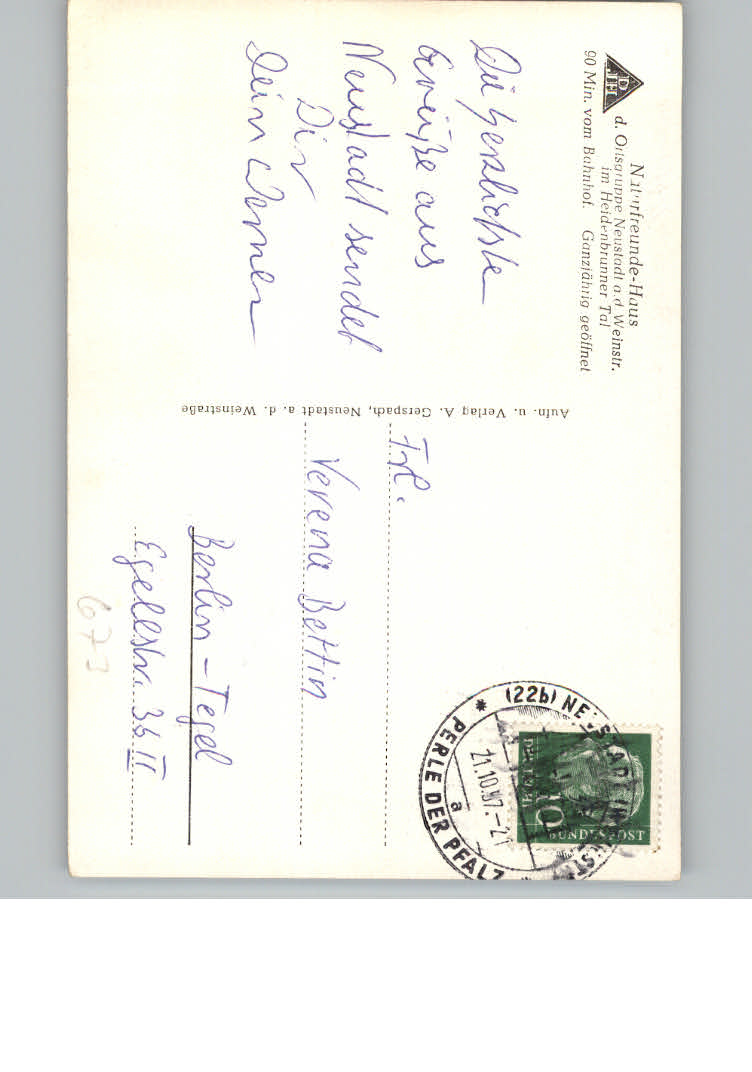 Naturfreunde-Haus
d. Ortsgruppe Neustadt a.d Weinstr.
im Heidenbrunner Tal
90 Min. vom Bahnhof. Ganzjährig geöffnet
Die herzlichste
Grüße aus
Neustadt sendet
Dir
Dein Werner
Aufn. u. Verlag A. Gerspach, Neustadt a. d. Weinstraße
Frl.
Verena Bettin
Berlin-Tegel
Egellsstr. 36 II
673
(22b) NEUSTADT
PERLE DER PFALZ
21.10.57.-21
a
10
BUNDESPOST